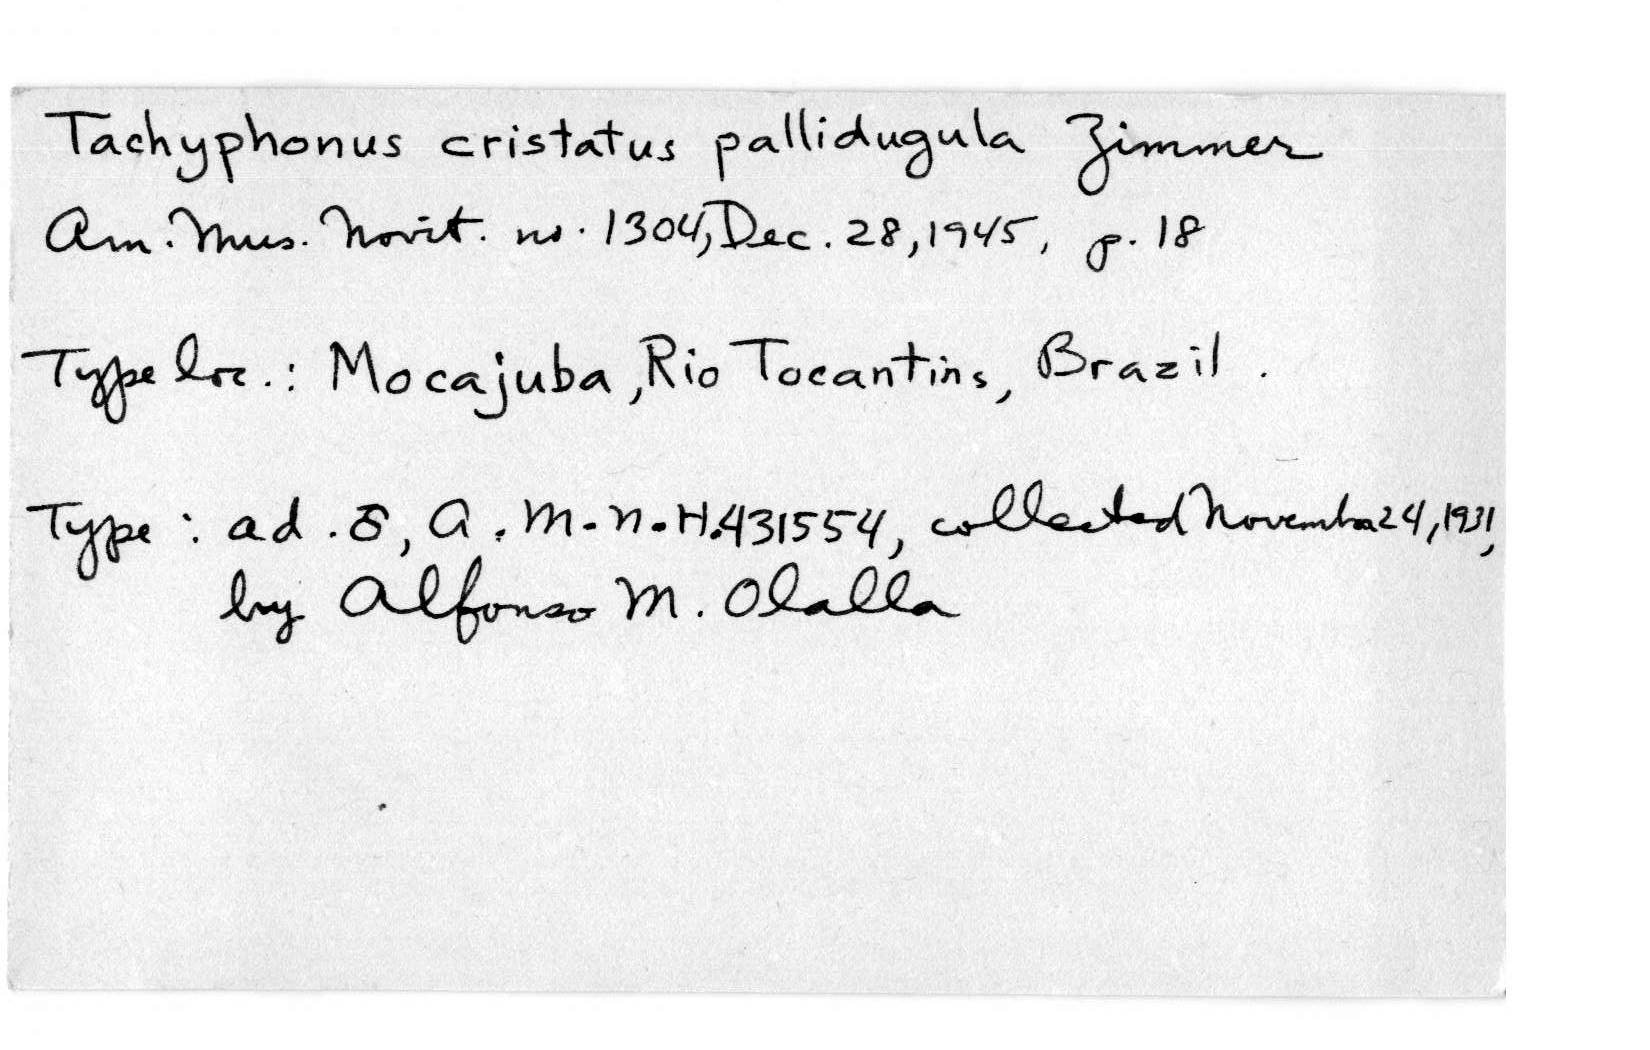 Tachyphonus cristatus pallidugula Zimmer
Am. Mus. Novit. no. 1304, Dec. 28, 1945, p. 18
Type loc.: Mocajuba, Rio Tocantins, Brazil.
Type: ad. ♂, A.M.N.H. 431554, collected November 24, 1931,
by Alfonso M. Olalla